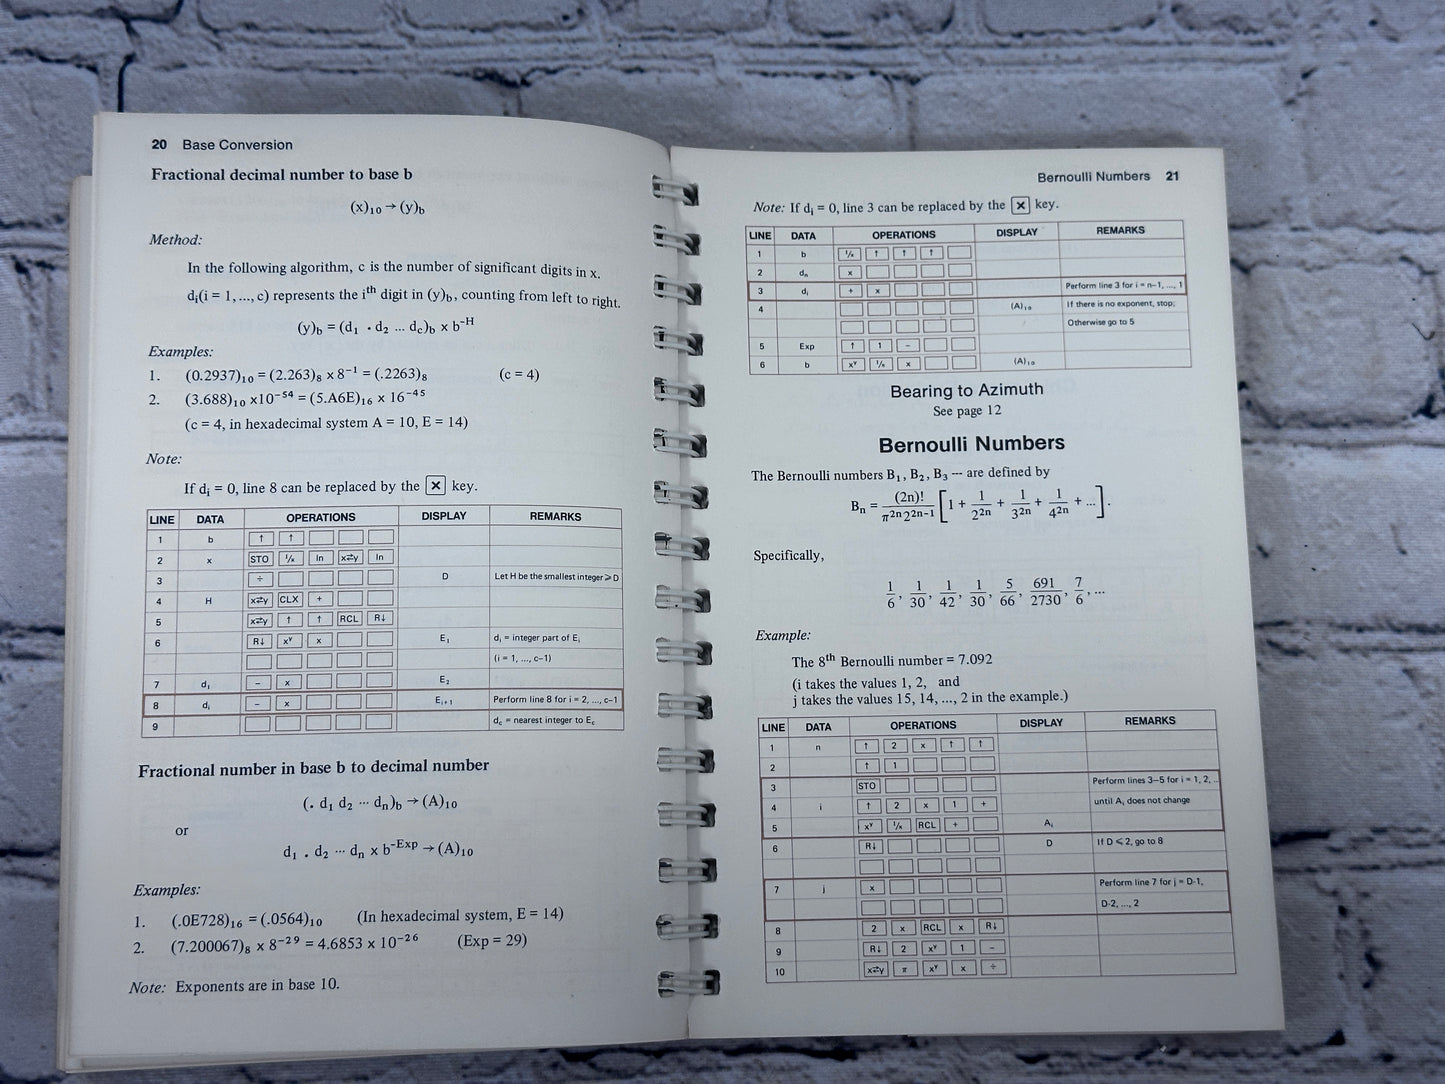 20 Base Conversion
Fractional decimal number to base b
(x)₁₀ → (y)b
Method:
In the following algorithm, c is the number of significant digits in x.
dᵢ(i = 1, ..., c) represents the iᵗʰ digit in (y)b, counting from left to right.
(y)b = (d₁ . d₂ ... dc)b x b⁻ᴴ
Examples:
1. (0.2937)₁₀ = (2.263)₈ x 8⁻¹ = (.2263)₈ (c = 4)
2. (3.688)₁₀ x10⁻⁵⁴ = (5.A6E)₁₆ x 16⁻⁴⁵
(c = 4, in hexadecimal system A = 10, E = 14)
Note:
If dᵢ = 0, line 8 can be replaced by the × key.
LINE DATA OPERATIONS DISPLAY REMARKS
1 b ↑ ↑
2 x STO ¹/x ln x⇄y ln
3 ÷ D Let H be the smallest integer ⩾ D
4 H x⇄y CLX +
5 x⇄y ↑ ↑ RCL R↓
6 R↓ xʸ x E₁ dᵢ = integer part of Eᵢ
(i = 1, ..., c−1)
7 d₁ − x E₂
8 dᵢ − x Eᵢ₊₁ Perform line 8 for i = 2, ..., c−1
9 dc = nearest integer to Ec
Fractional number in base b to decimal number
(. d₁ d₂ ··· dₙ)b → (A)₁₀
or
d₁ . d₂ ··· dₙ x b⁻ᴱˣᵖ → (A)₁₀
Examples:
1. (.0E728)₁₆ = (.0564)₁₀ (In hexadecimal system, E = 14)
2. (7.200067)₈ x 8⁻²⁹ = 4.6853 x 10⁻²⁶ (Exp = 29)
Note: Exponents are in base 10.
Bernoulli Numbers 21
Note: If dᵢ = 0, line 3 can be replaced by the × key.
LINE DATA OPERATIONS DISPLAY REMARKS
1 b ¹/x ↑ ↑ ↑
2 dₙ x
3 dᵢ + x Perform line 3 for i = n−1, ..., 1
4 (A)₁₀ If there is no exponent, stop;
Otherwise go to 5
5 Exp ↑ 1 −
6 b xʸ ¹/x x (A)₁₀
Bearing to Azimuth
See page 12
Bernoulli Numbers
The Bernoulli numbers B₁, B₂, B₃ ··· are defined by
Bₙ = (2n)!/π²ⁿ2²ⁿ⁻¹ [1 + 1/2²ⁿ + 1/3²ⁿ + 1/4²ⁿ + ...].
Specifically,
1/6, 1/30, 1/42, 1/30, 5/66, 691/2730, 7/6, ...
Example:
The 8ᵗʰ Bernoulli number = 7.092
(i takes the values 1, 2, and
j takes the values 15, 14, ..., 2 in the example.)
LINE DATA OPERATIONS DISPLAY REMARKS
1 n ↑ 2 x ↑ ↑
2 ↑ 1
3 STO Perform lines 3–5 for i = 1, 2, ..
4 i ↑ 2 x 1 + until Aᵢ does not change
5 xʸ ¹/x RCL + Aᵢ
6 R↓ D If D ⩽ 2, go to 8
7 j x Perform line 7 for j = D-1,
D-2, ..., 2
8 2 x RCL x R↓
9 R↓ 2 xʸ 1 −
10 x⇄y π xʸ x ÷